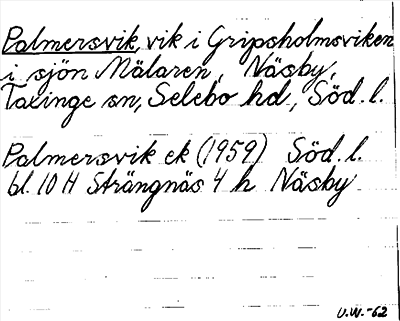 Palmersvik, vik i Gripsholmsviken
i sjön Mälaren, Näsby,
Taxinge sn, Selebo hd, Söd. l.
Palmersvik ek (1959) Söd. l.
bl. 10 H Strängnäs 4 h Näsby
U.W.-62